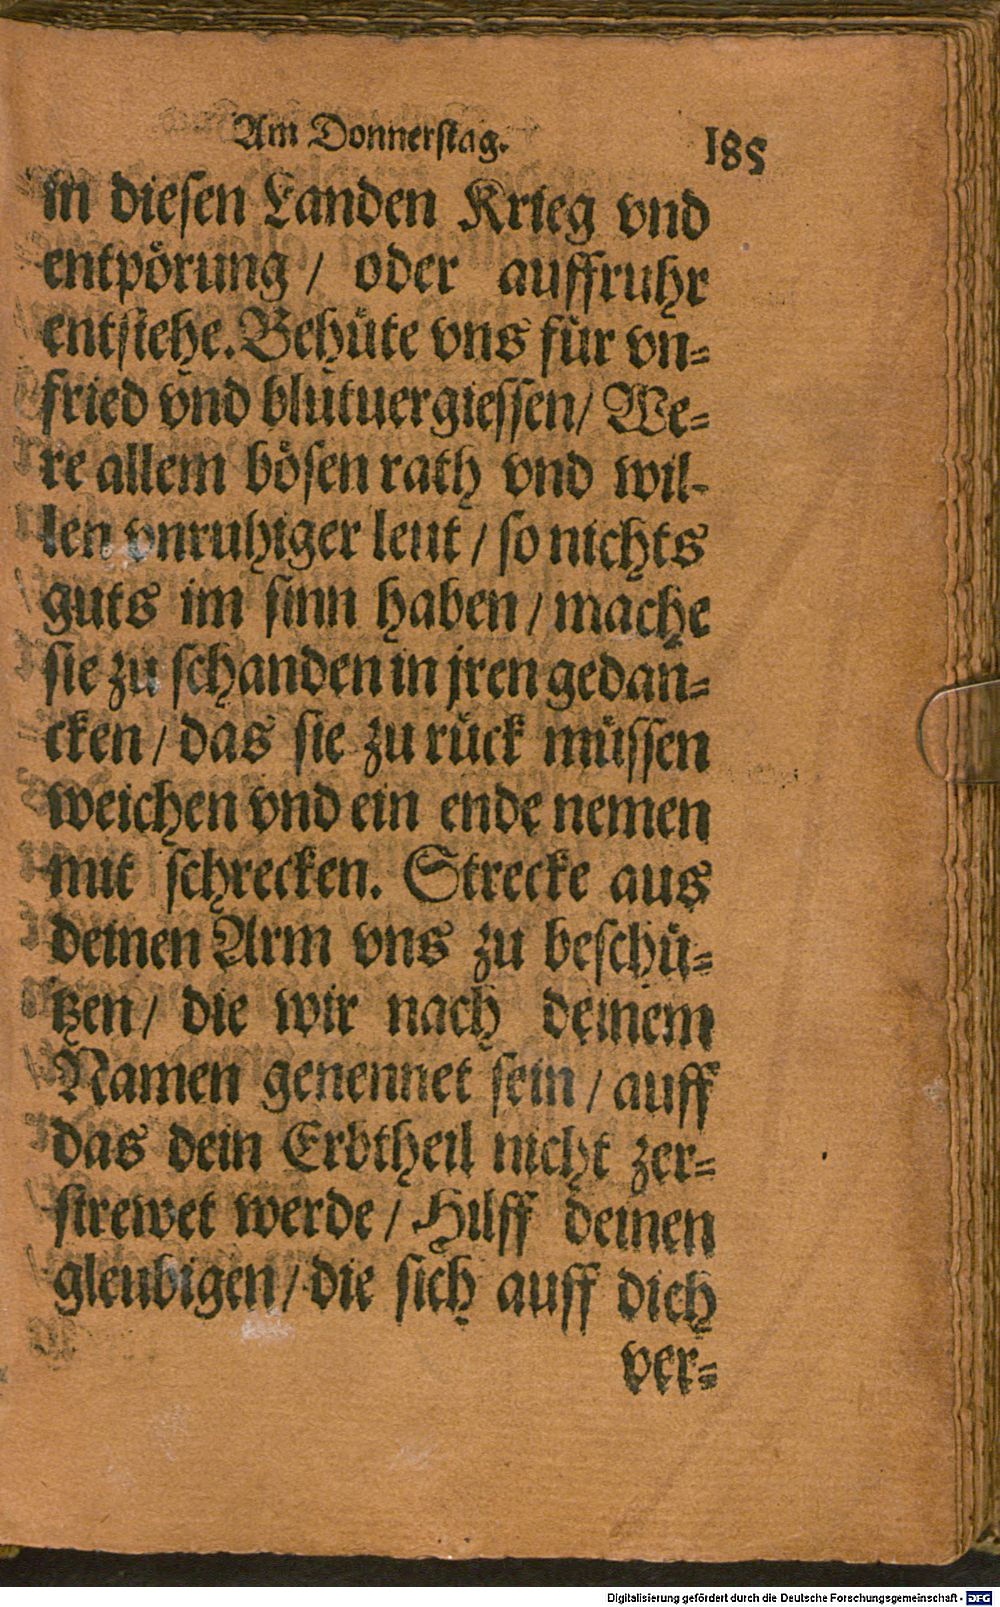 Am Donnerstag. 185
in diesen Landen Krieg vnd
entpörung / oder auffruhr
entstehe. Behüte vns für vn=
fried vnd blutuergiessen / We=
re allem bösen rath vnd wil-
len vnruhiger leut / so nichts
guts im sinn haben / mache
sie zu schanden in jren gedan=
cken / das sie zu rück müssen
weichen vnd ein ende nemen
mit schrecken. Strecke aus
deinen Arm vns zu beschü=
tzen / die wir nach deinem
Namen genennet sein / auff
das dein Erbtheil nicht zer=
strewet werde / Hilff deinen
gleubigen / die sich auff dich
ver=
Digitalisierung gefördert durch die Deutsche Forschungsgemeinschaft - DFG